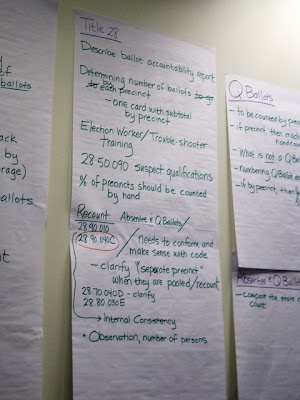 Title 28
Describe ballot accountability report
Determining number of ballots to go
to each precinct
by
- one card with subtotal
by precinct
Election Worker/Trouble-shooter
training
28.50.090 suspect qualifications
% of precincts should be counted
by hand
Recount Absentee & Q Ballots/
28.90.010
28.90.040C / needs to conform and
make sense with code
- clarify "separate precinct"
when they are pooled/recount
28.70.040D - clarify
28.80.030E
→ Internal Consistency
• Observation, number of persons
of
ballots
ack
by
rage)
allots
nt
Q Ballots
- to be counted by
- if precinct, then
hand
- What is not a Q
- numbering Q Ballot
- if by precinct, then
Absentee & Q
- compare the
count